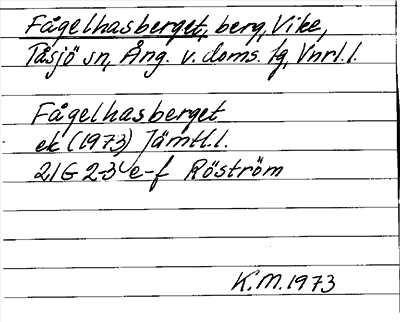 Fågelhasberget, berg, Vike,
Tåsjö sn, Ång. v. doms. lg, Vnrl. l.
Fågelhasberget
ek (1973) Jämtl. l.
21G 2-3 e-f Röström
K.M. 1973